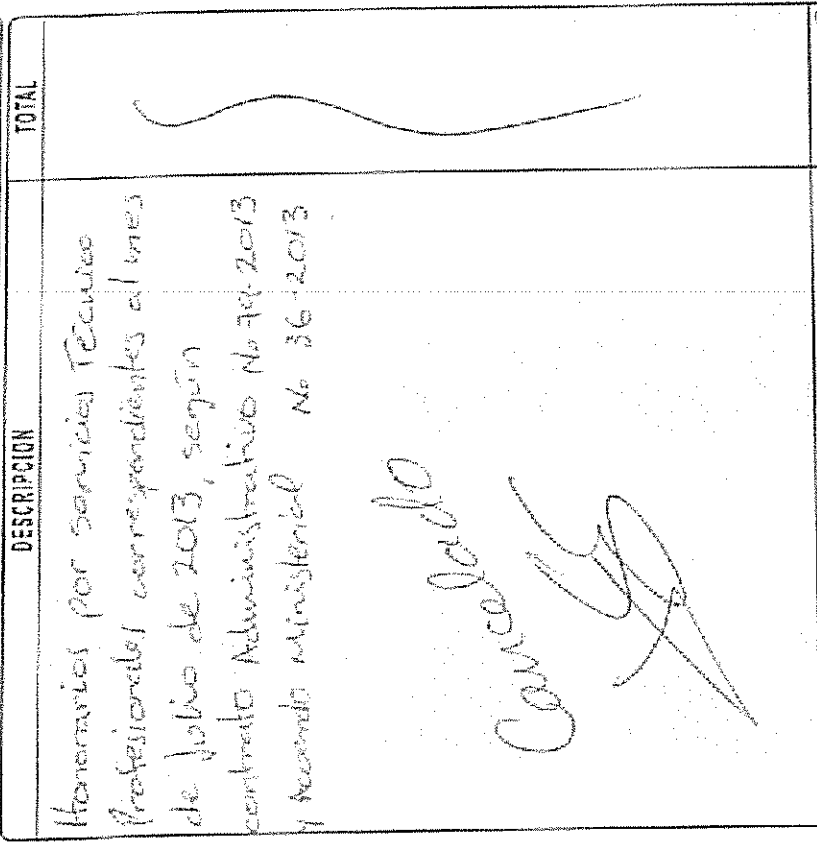 DESCRIPCION
TOTAL
Honorarios por servicios Técnico
Profesionales correspondientes al mes
de Julio de 2013, según
contrato Administrativo No 2013
y acuerdo ministerial No 36-2013
Cancelado